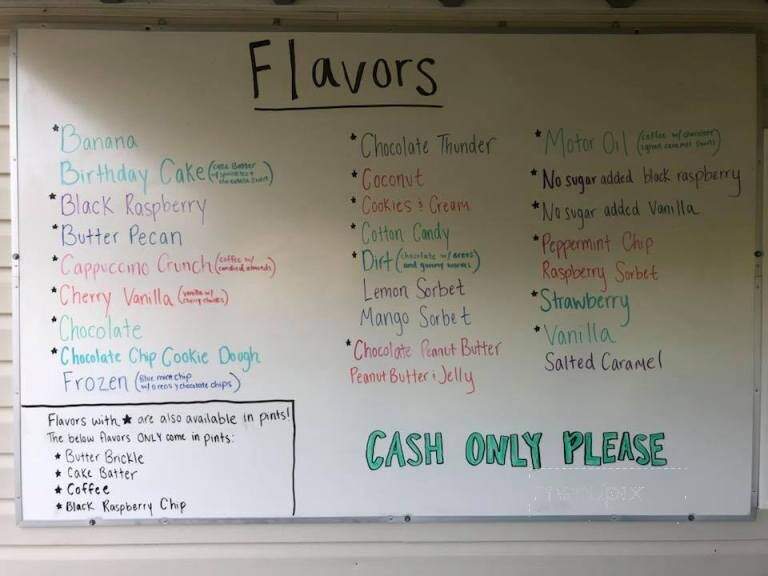 Flavors
*Banana
Birthday Cake (cake batter w/ sprinkles + chocolate swirl)
*Black Raspberry
*Butter Pecan
*Cappuccino Crunch (coffee w/ candied almonds)
*Cherry Vanilla (vanilla w/ cherry chunks)
*Chocolate
*Chocolate Chip Cookie Dough
Frozen (Blue mint chip w/ oreos y chocolate chips)
*Chocolate Thunder
*Coconut
*Cookies & Cream
*Cotton Candy
*Dirt (chocolate w/ oreos and gummy worms)
Lemon Sorbet
Mango Sorbet
*Chocolate Peanut Butter
Peanut Butter & Jelly
*Motor Oil (coffee w/ chocolate caramel swirls)
*No sugar added black raspberry
*No sugar added Vanilla
*Peppermint Chip
Raspberry Sorbet
*Strawberry
*Vanilla
Salted Caramel
Flavors with ★ are also available in pints!
The below flavors ONLY come in pints:
★ Butter Brickle
★ Cake Batter
★ Coffee
★ Black Raspberry Chip
CASH ONLY PLEASE
menupix